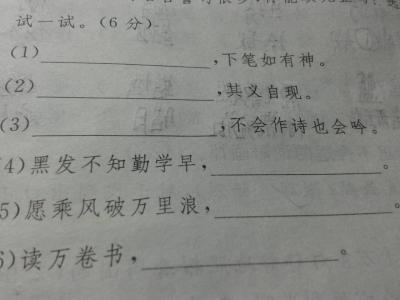 试一试。(6分)
(1)，下笔如有神。
(2)，其义自现。
(3)，不会作诗也会吟。
4)黑发不知勤学早，。
5)愿乘风破万里浪，。
6)读万卷书，。